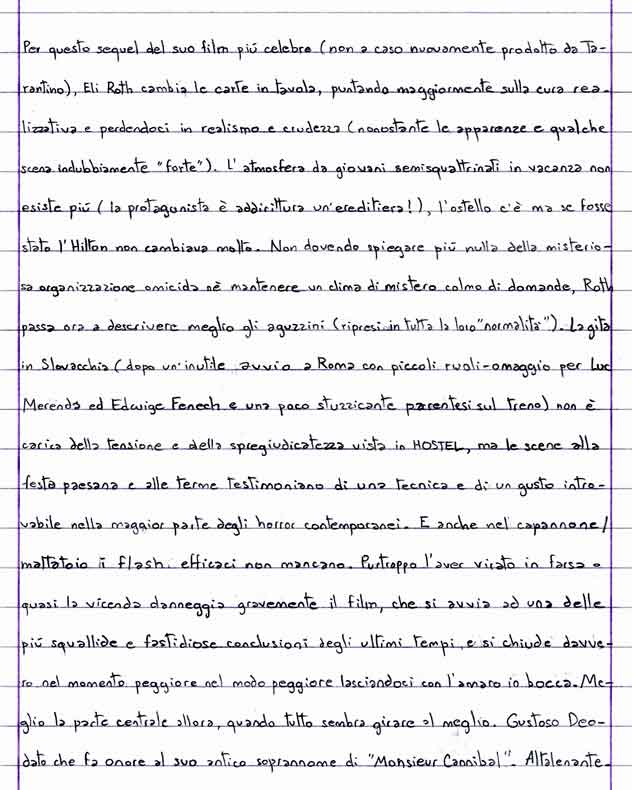 Per questo sequel del suo film più celebre (non a caso nuovamente prodotto da Ta-
rantino), Eli Roth cambia le carte in tavola, puntando maggiormente sulla cura rea-
lizzativa e perdendoci in realismo e crudezza (nonostante le apparenze e qualche
scena indubbiamente "forte"). L'atmosfera da giovani semisquattrinati in vacanza non
esiste più (la protagonista è addirittura un'ereditiera!), l'ostello c'è ma se fosse
stato l'Hilton non cambiava molto. Non dovendo spiegare più nulla della misterio-
sa organizzazione omicida nè mantenere un clima di mistero colmo di domande, Roth
passa ora a descrivere meglio gli aguzzini (ripresi in tutta la loro "normalità"). La gita
in Slovacchia (dopo un'inutile avvio a Roma con piccoli ruoli-omaggio per Luc
Merenda ed Edwige Fenech e una poco stuzzicante parentesi sul treno) non è
carica della tensione e della spregiudicatezza vista in HOSTEL, ma le scene alla
festa paesana e alle terme testimoniano di una tecnica e di un gusto intro-
vabile nella maggior parte degli horror contemporanei. E anche nel capannone/
mattatoio i flash efficaci non mancano. Purtroppo l'aver virato in farsa o
quasi la vicenda danneggia gravemente il film, che si avvia ad una delle
più squallide e fastidiose conclusioni degli ultimi tempi, e si chiude davve-
ro nel momento peggiore nel modo peggiore lasciandoci con l'amaro in bocca. Me-
glio la parte centrale allora, quando tutto sembra girare al meglio. Gustoso Deo-
dato che fa onore al suo antico soprannome di "Monsieur Cannibal". Altalenante.